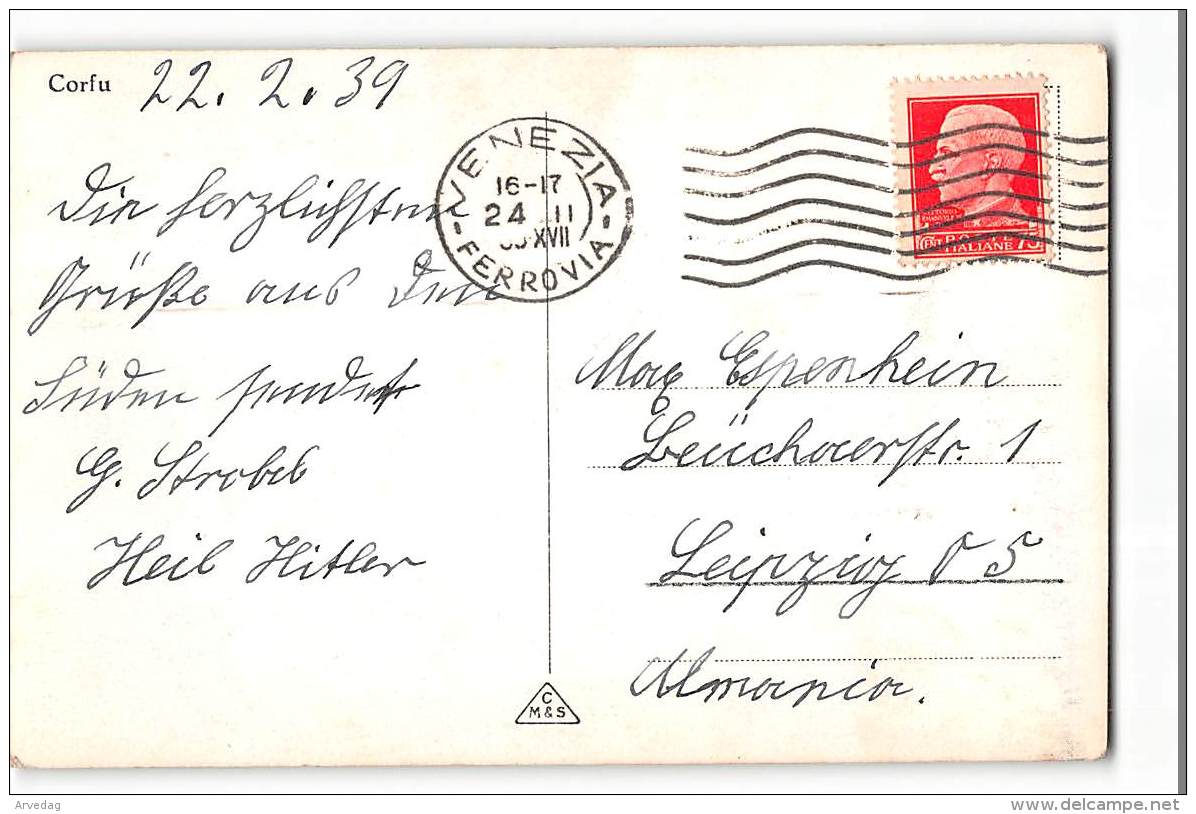 Corfu 22. 2. 39
Die herzlichsten
Grüße aus dem
Süden sendet
G. Strobel
Heil Hitler
VENEZIA
16-17
24 II
XVII
FERROVIA
POSTE
ITALIANE
CENT 75
Max Espenhein
Beüchaerstr. 1
Leipzig O 5
Almania.
C
M&S
Arvedag
delcampe.net